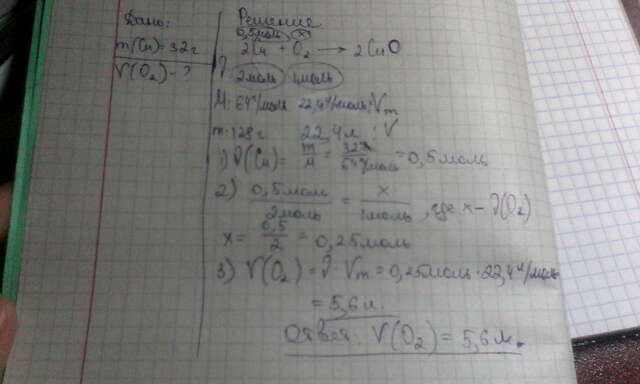 Дано:
m(Cu)=32г
V(O₂)-?
Решение
0,5моль x
2Cu + O₂ → 2CuO
ν 2моль 1моль
M: 64г/моль 22,4л/моль:Vm
m: 128г 22,4л :V
1) ν(Cu)= m/M = 32г/64г/моль =0,5моль
2) 0,5моль/2моль = x/1моль, где x – ν(O₂)
x= 0,5/2 = 0,25моль
3) V(O₂)=ν·Vm=0,25моль·22,4л/моль
=5,6л.
Ответ: V(O₂)=5,6л.